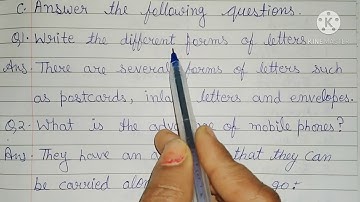 C. Answer the following questions.
Q1. Write the different forms of letters.
Ans. There are several forms of letters such
as postcards, inland letters and envelopes.
Q2. What is the of mobile phones?
Ans. They have an that they can
be carried go.